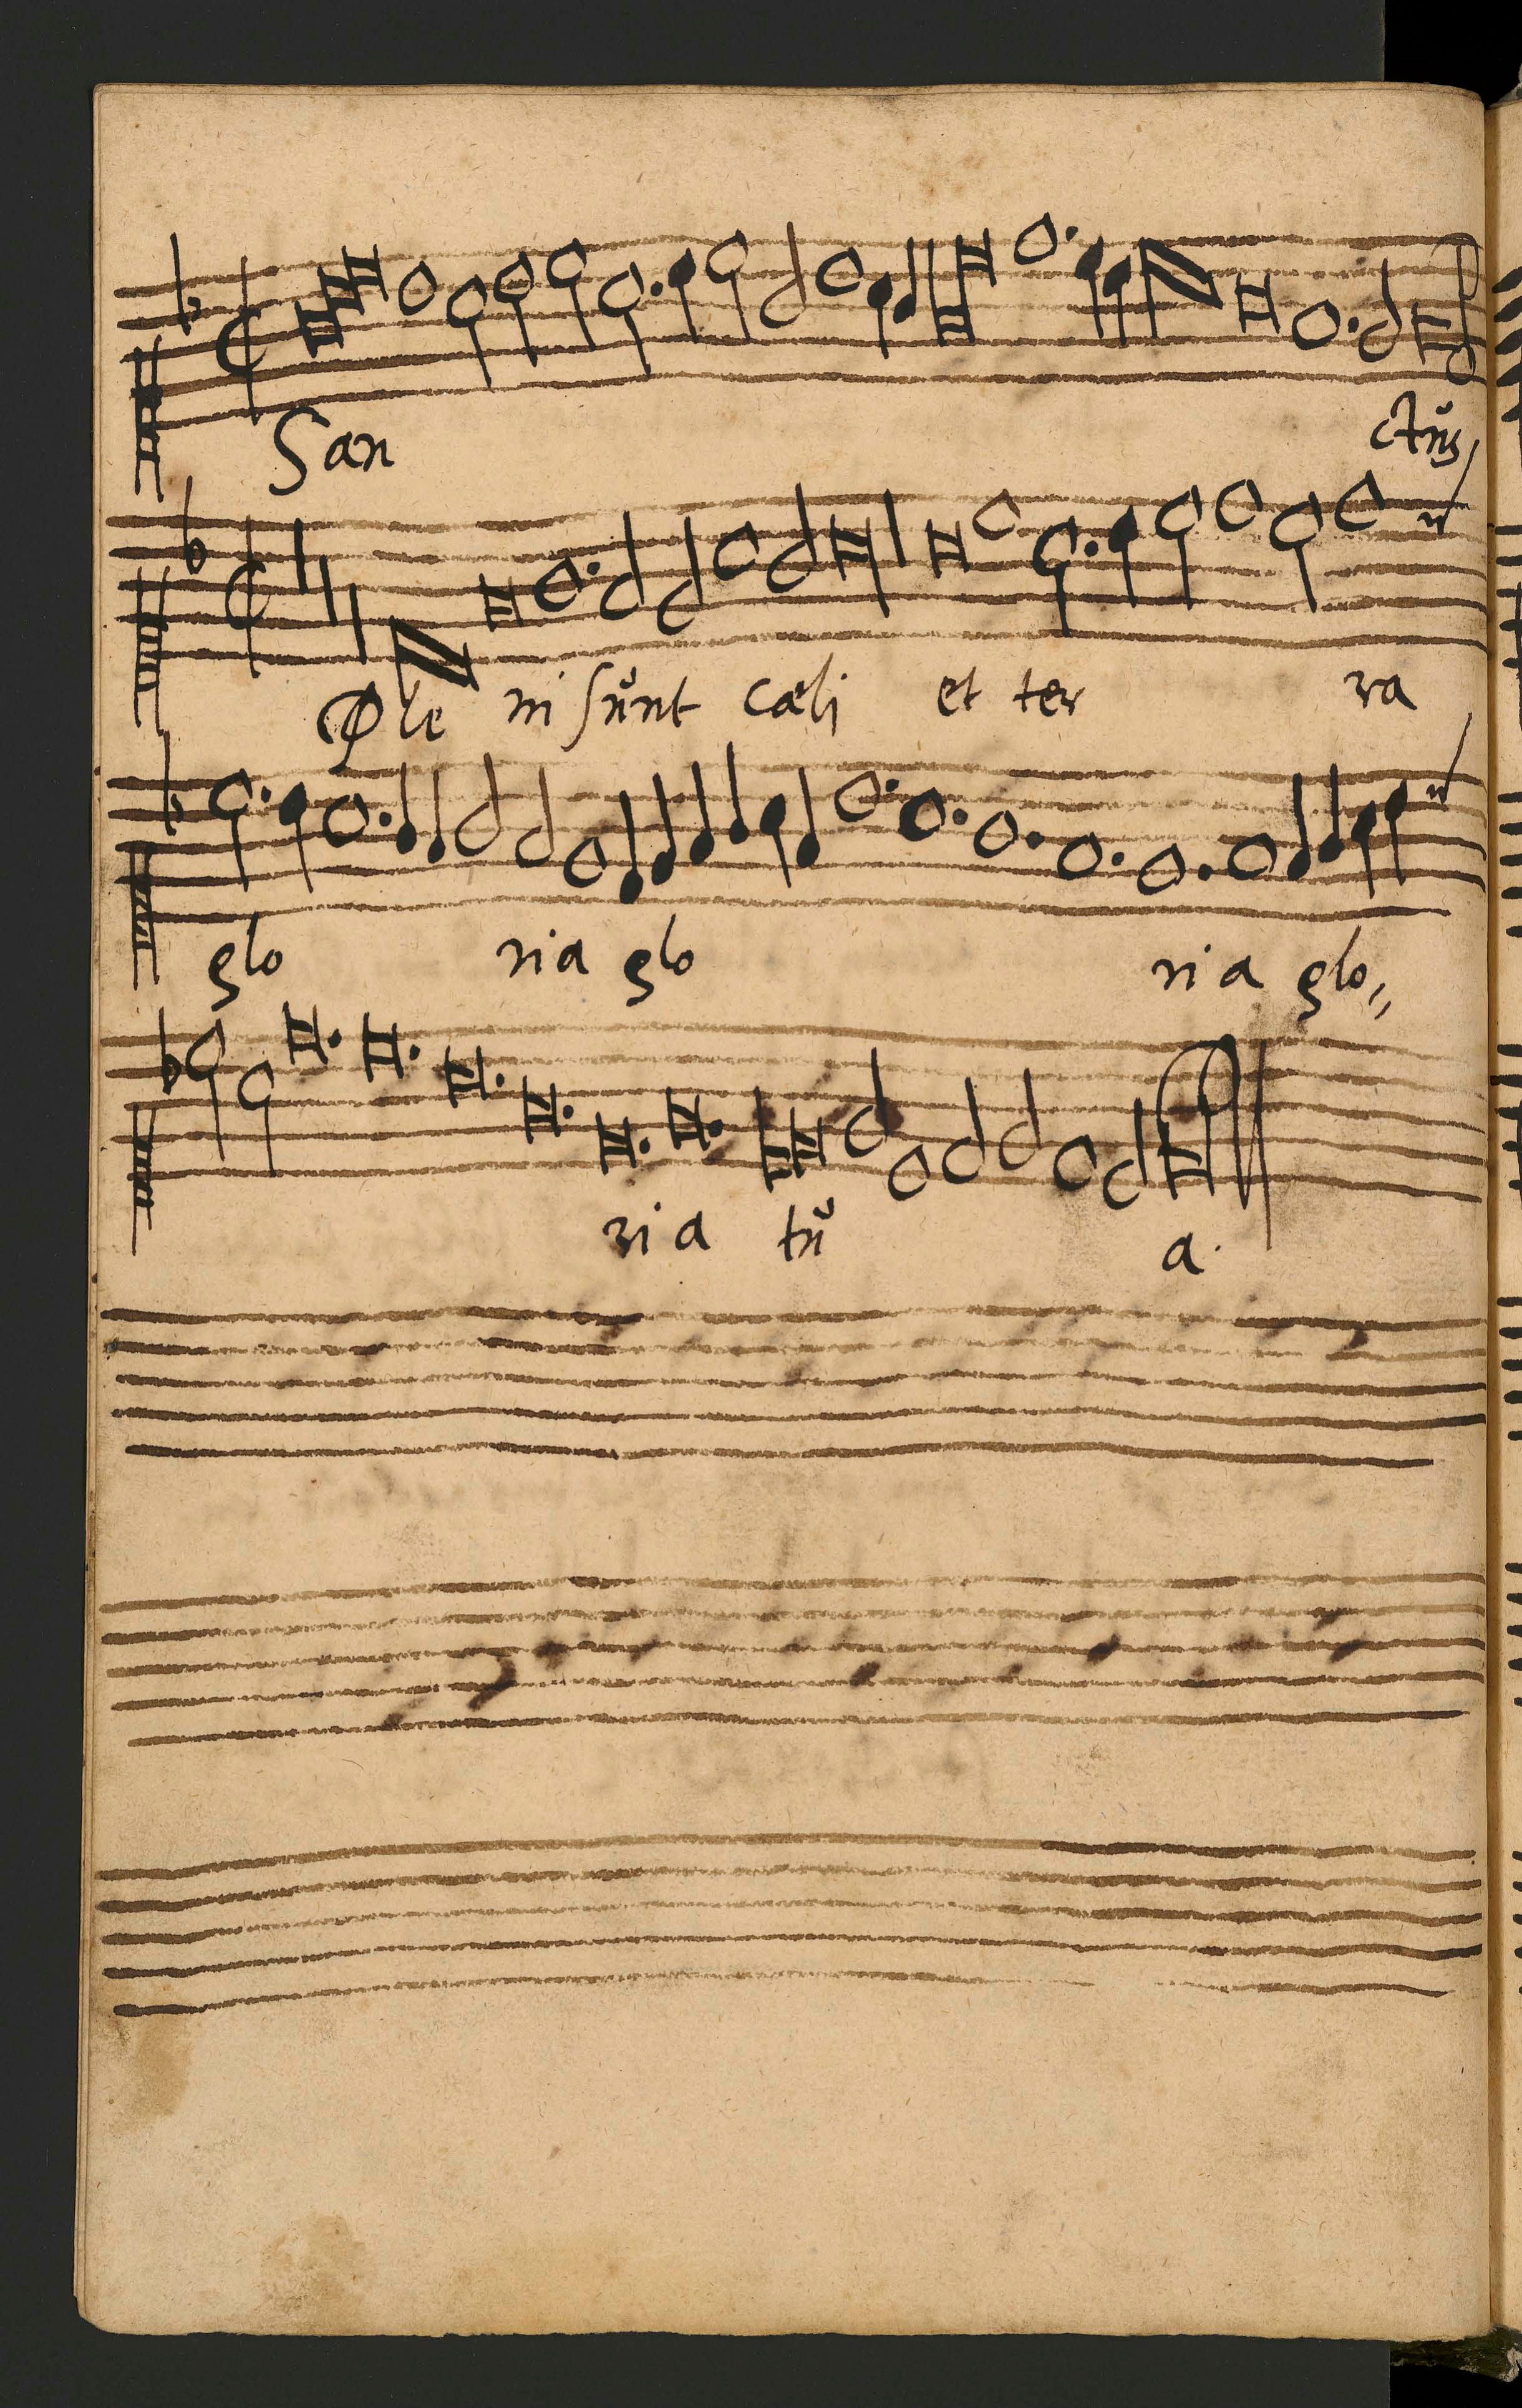 San ctus
Ple ni sunt cæli et ter ra
glo ria glo ri a glo
ri a tu a.